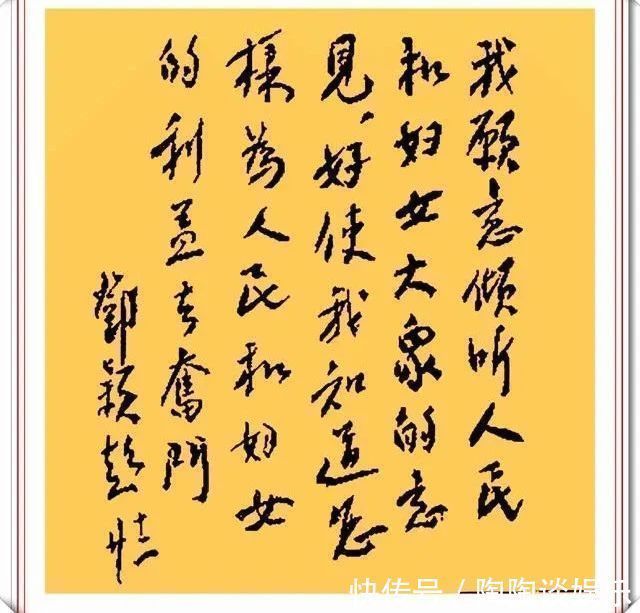 我願意傾听人民
和妇女大衆的意
見，好使我知道怎
樣為人民和妇女
的利益去奮鬥
鄧穎超
快传号 / 陶陶谈娱乐